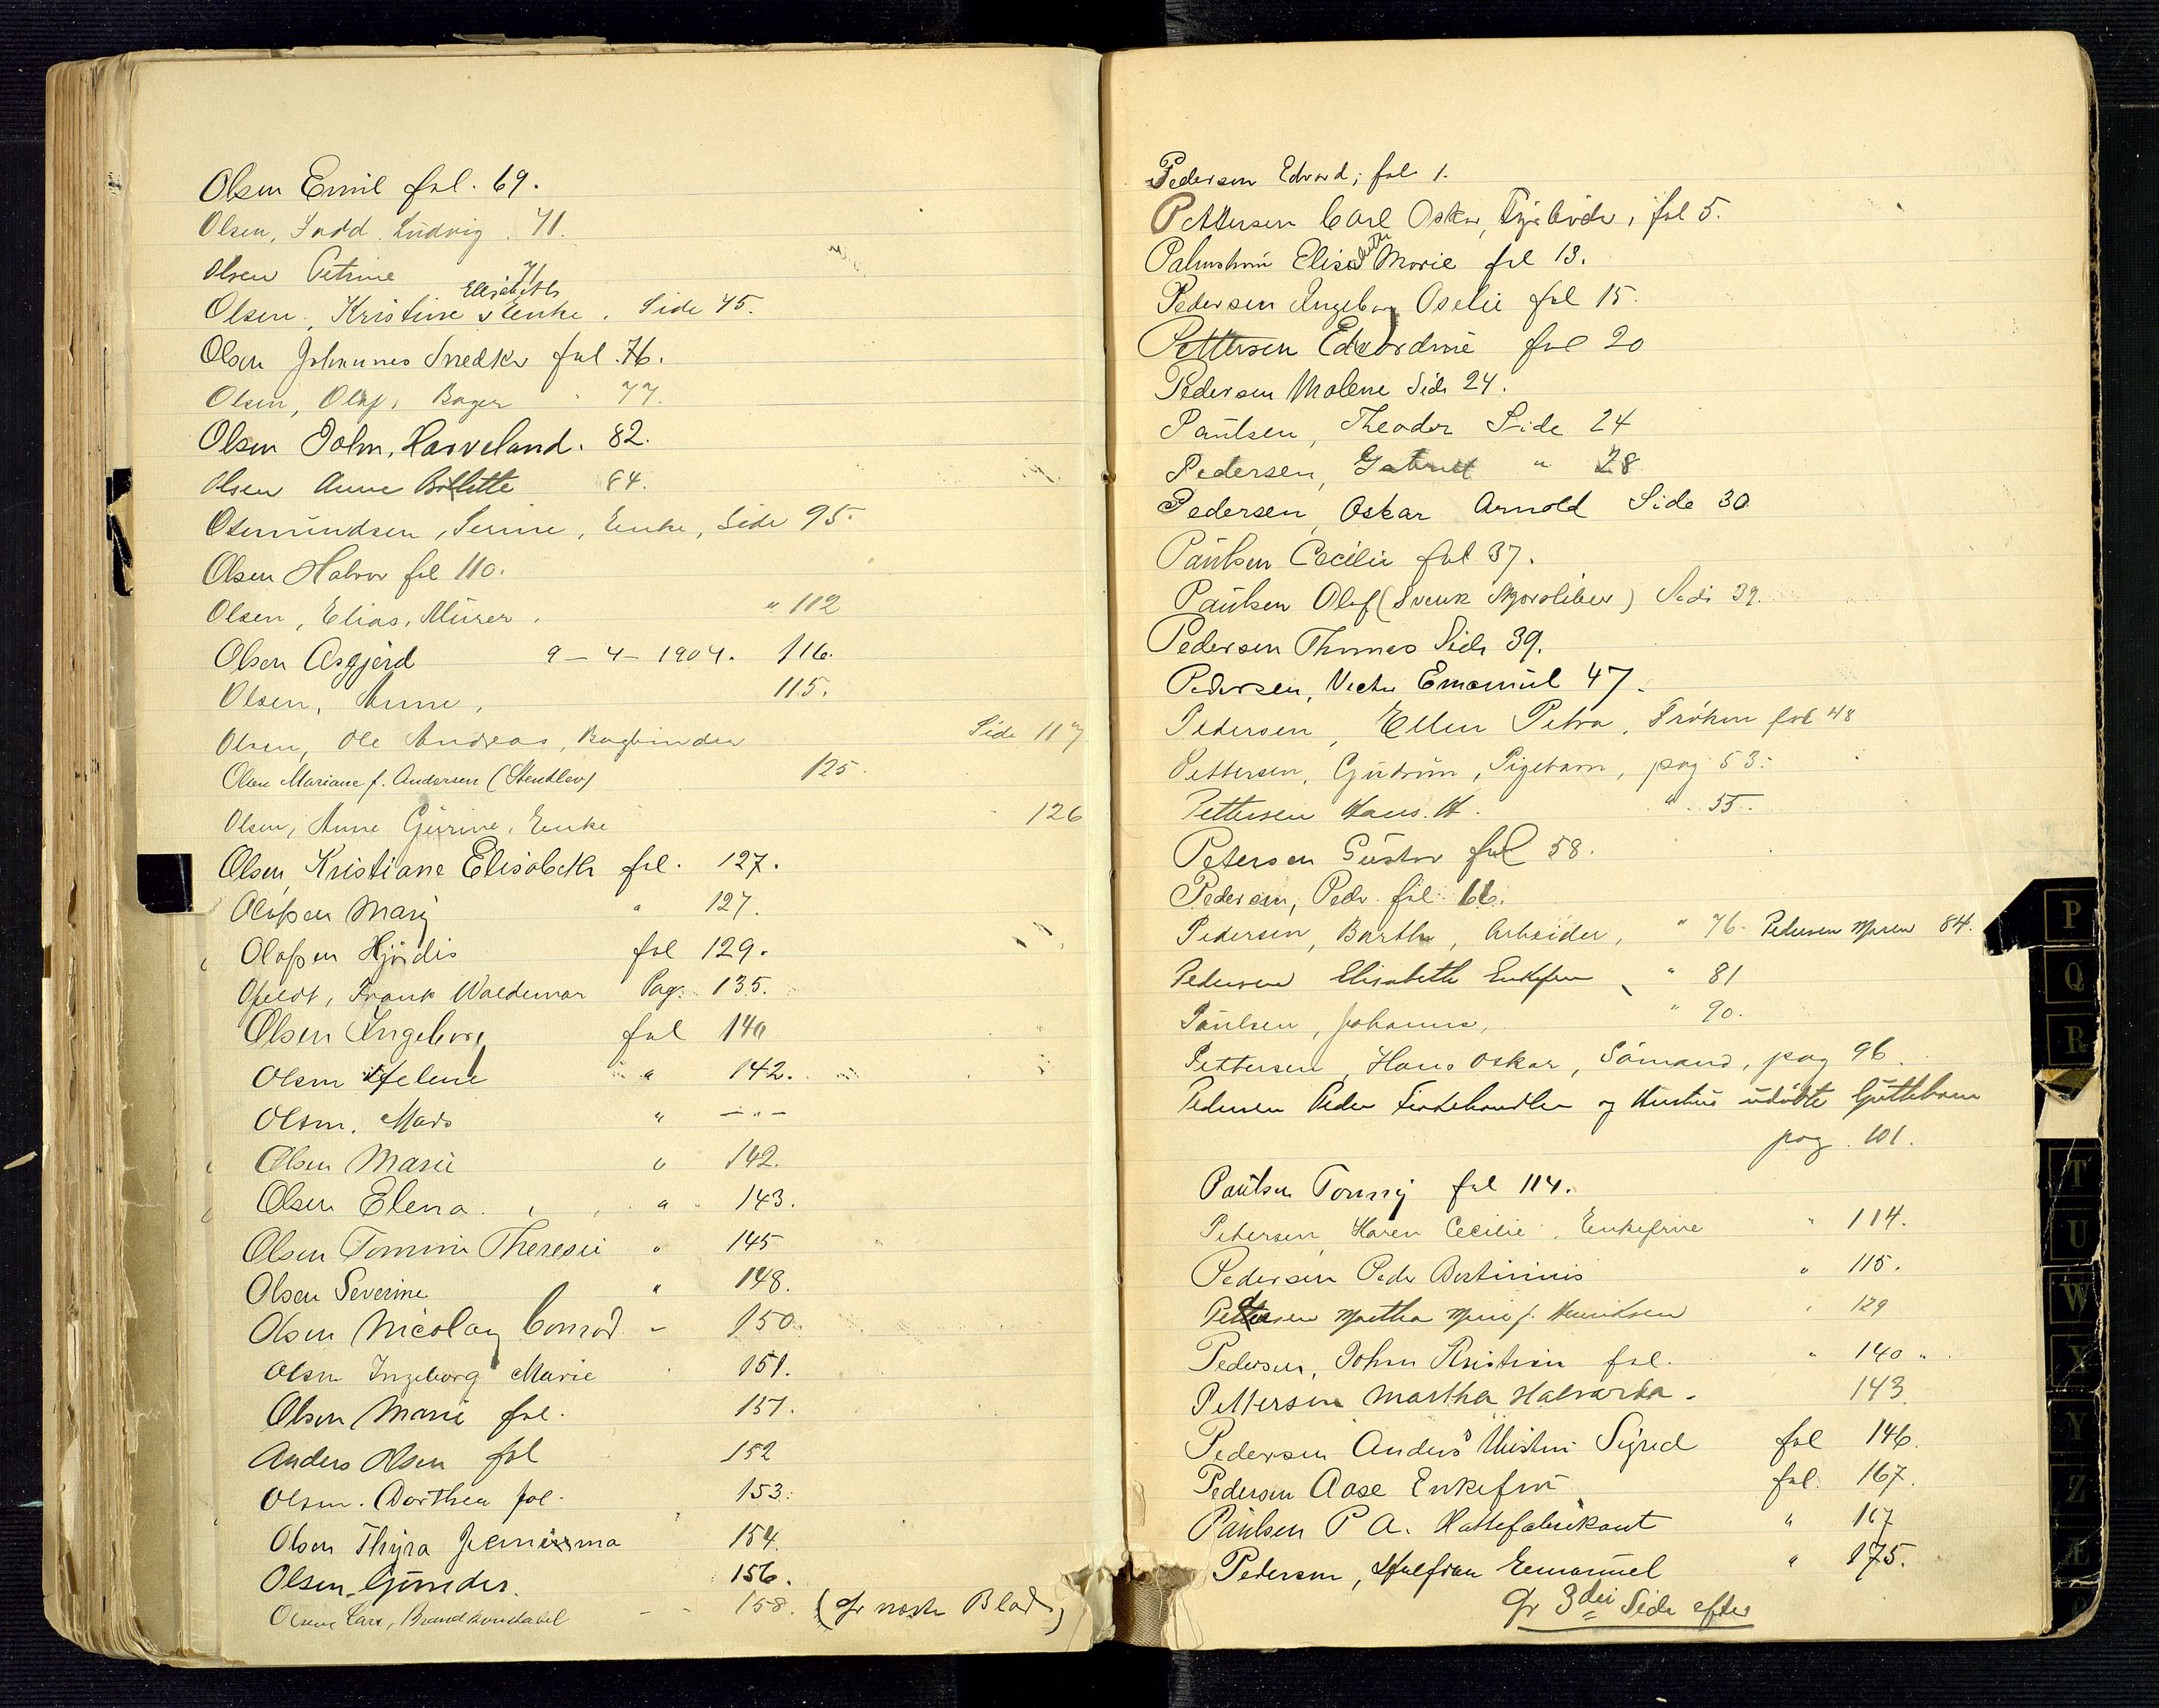 Olsen Emil fol. 69.
Olsen, Ludvig. 71.
Olsen Petrine 71
Elisabeth
Olsen, Kristine Enke. Side 75.
Olsen Johannes Snedker fol. 76.
Olsen, Olaf, Bager " 77.
Olsen John, Hasveland. 82.
Olsen Anne Bollette 84.
Osmundsen, Serine, Enke, Side 95
Olsen Halvor fol 110.
Olsen, Elias, Murer, " 112
Olsen Asgjerd 9-4-1904. 116.
Olsen, Anne, 115.
Olsen, Ole Andreas, Bogbinder Side 117
Olsen Mariane f. Andersen (Stenklev) 125.
Olsen, Anne Gurine, Enke 126
Olsen, Kristiane Elisabeth fol. 127.
Olofsen Mary " 127.
Olofsen Hjördis fol 129.
Ofeldt, Frank Waldemar Pag. 135.
Olsen Ingeborg fol 140
Olsen Helene " 142.
Olsen, Mads " — " —
Olsen Marie " 142.
Olsen Elena. " 143.
Olsen Tomine Theresie " 145
Olsen Severine " 148.
Olsen Nicolay Conrad - 150.
Olsen Ingeborg Marie 151.
Olsen Marie fol. 151.
Anders Olsen fol 152
Olsen. Dorthea fol. 153.
Olsen Thyra 154.
Olsen Gunder. 156.
Olsen, Lars, Brandkonstabel - - 158. (Gr næste Blad)
Pedersen Edvard, fol. 1.
Pettersen Carl Oskar, fol 5.
Palmstrøm Elisabeth Marie fol 13.
Pedersen Ingeborg Oselie fol 15.
Pettersen Edvardine fol 20
Pedersen Malene Side 24.
Paulsen, Theodor Side 24
Pedersen, Gabriel " 28
Pedersen, Oskar Arnold Side 30
Paulsen Cecilie fol 37.
Paulsen Olaf (Svensk Skorsliber) Side 39.
Pedersen Thomas Side 39.
Pedersen, Victor Emanuel 47.
Pedersen, Ellen Petra, Frøken fol 48
Pettersen, Gudrun, Pigebarn, pag 53.
Pettersen Hans. H. " 55.
Petersen Gustav fol 58.
Pedersen, Peder fol 66.
Pedersen, Barth, Arbeider, " 76. Pedersen Maren 84.
Pedersen Elisabeth Enkefru " 81
Paulsen, Johanne, " 90.
Pettersen, Hans Oskar, Sömand, pag 96.
Pedersen Peder Fiskehandler og Hustrus udöbte Guttebarn
pag. 101.
Paulsen Tonny fol 114.
Petersen, Karen Cecilie, Enkefrue " 114.
Pedersen Peder Bertinius " 115.
Pedersen Martha Marie f. Henriksen " 129
Pedersen, Johan Kristian fol. " 140 "
Pettersen Martha Halvarda - 143
Pedersen Anders' Hustru Sigrid fol 146.
Pedersen Aase Enkefru fol. 167.
Paulsen P A. Hattefabrikant " 167
Pedersen, Halfdan Emanuel " 175.
Gr 3die Side efter
P
Q
R
T
U
W
X
Y
Z
Æ